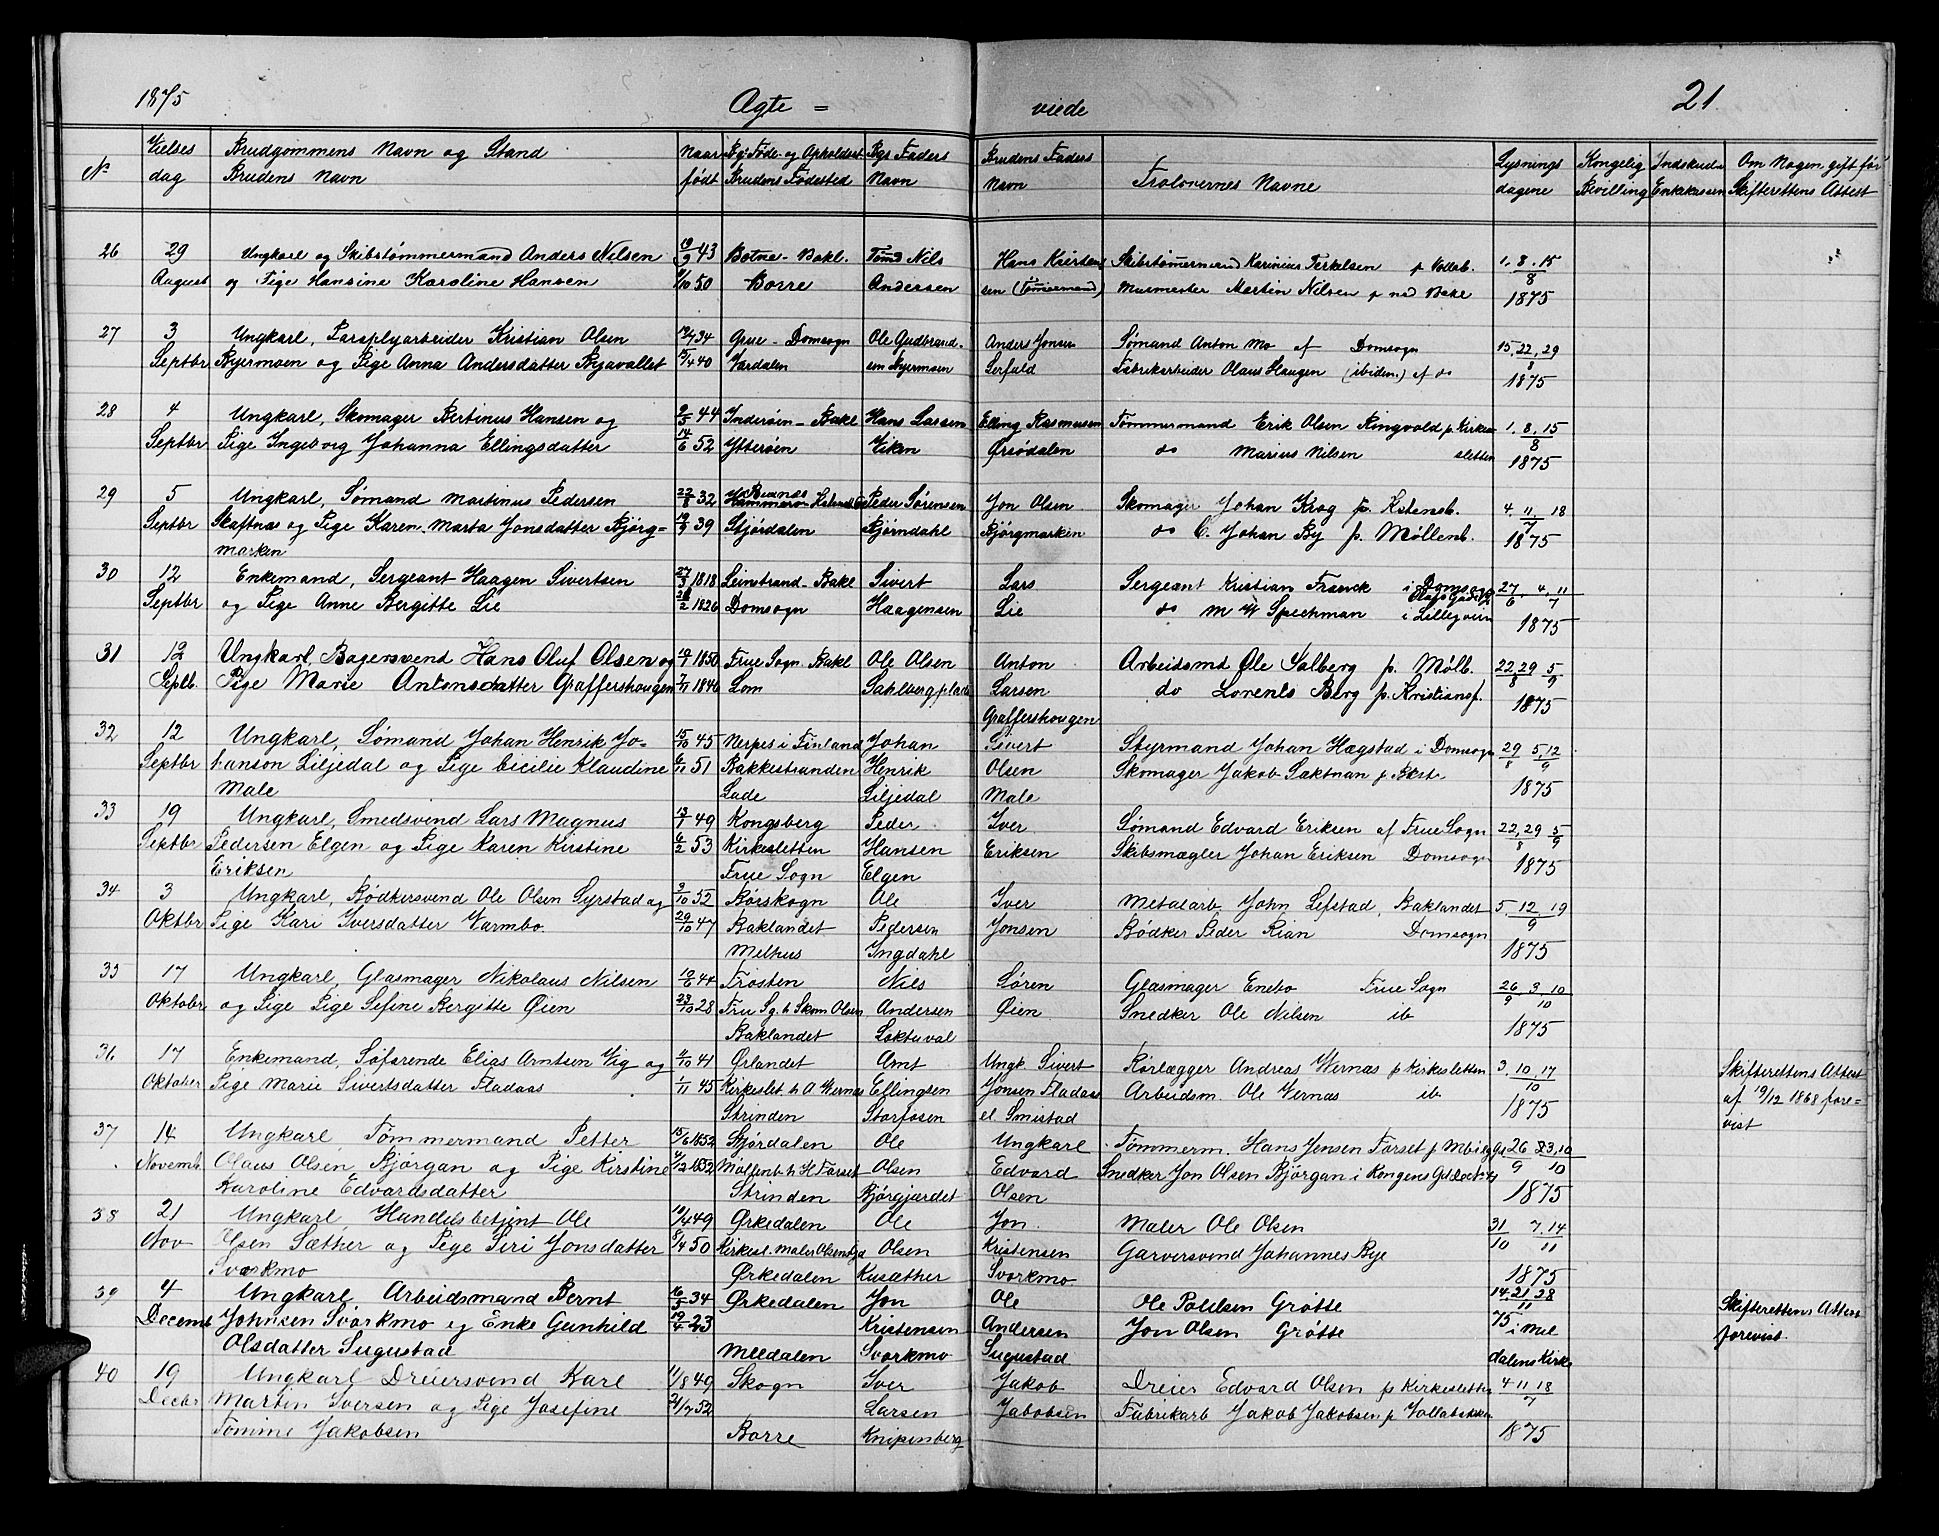 1875 Ægte = viede 21
No Vielses dag Brudgommens Navn og Stand Brudens Navn Naar født Bg. Føde- og Opholdsst. Brudens Fødested Bgs Faders Navn Brudens Faders Navn Trolovernes Navne Lysnings dagene Kongelig Bevilling Indskuds Enkekassen Om Nogen gift før Skifterettens Attest
26 29 Ungkarl og Skibstømmermand Anders Nilsen 19/9 43 Botne - Bakl. Tømd Nils Hans Skibstømermand Karinius Terkelsen p Vollab. 1. 8. 15
August og Pige Hansine Karoline Hansen 9/10 50 Borre Andersen sen (Tømmermand) Musmester Martin Nilsen p nd Bakl 8 1875
27 3 Ungkarl, Paraplyarbeider Kristian Olsen 34 Grue - Domsogn Ole Gudbrand- Anders Jonsen Sømand Anton Mo af Domsogn 15, 22, 29
Septbr Byermoen og Pige Anna Andersdatter Byavallet 40 Værdalen sen Byermoen Fabrikarbeider Olaus Haugen (ibiden.) af do 8 1875
28 4 Ungkarl, Skomager Bertinus Hansen og 44 Inderøen - Bakl Hans Larsen Elling Rasmussen Tømmermand Erik Olsen Ringvold p. Kirke 1. 8. 15
Septbr Pige Ingeborg Johanna Ellingsdatter 14/6 52 Ytterøen Viken do Marius Nilsen sletten 8 1875
29 5 Ungkarl, Sømand Martinus Pedersen 22/8 32 Peder Sørensen Jon Olsen Skomager Johan Krog p. Kstensb. 4. 11. 18
Septbr Skaftnæs og Pige Karen Marta Jonsdatter Bjørg- 19/9 39 Stjørdalen Bjørndahl Bjørgmarken do C. Johan By p. Møllenb. 7 1875
marken
30 12 Enkemand, Sergeant Haagen Sivertsen 27/3 1818 Leinstrand - Bakl Sivert Lars Sergeant Kristian Franck i Domsogn 27 4. 11
Septbr og Pige Anne Bergitte Lie 1826 Domsogn Haagensen Lie do M W Speckman i Lillegven 6 7 1875
31 12 Ungkarl, Bagersvend Hans Oluf Olsen og 1850 Frue Sogn Bakl Ole Olsen Anton Arbeidsmd Ole Salberg p. Mølb. 22,29 5
Septb. Pige Marie Antonsdatter Graffershougen 7/11 1846 Lom Sahlbergplads Larsen do Lorents Berg p. Kristiansf. 8 9 1875
Graffershougen
32 12 Ungkarl, Sømand Johan Henrik Jo- 15/10 45 Nerpes i Finland Johan Sivert Styrmand Johan Hægstad i Domsogn 29 5, 12
Septbr hanson Liljedal og Pige Cecilie Klaudine 6/11 51 Bakkestranden Henrik Olsen Skomager Jakob Saksnan p Bkst. 8 9
Male Lade Liljedal Male 1875
33 19 Ungkarl, Smedsvend Lars Magnus 13/1 49 Kongsberg Peder Iver Sømand Edvard Eriksen af Frue Sogn 22, 29 5
Septbr Pedersen Elgen og Pige Karen Kirstine 6/2 53 Kirkesletten Hansen Eriksen Skibsmægler Johan Eriksen Domsogn 8 9
Eriksen Frue Sogn Elgen 1875
34 3 Ungkarl, Bødkersvend Ole Olsen Syrstad og 3/10 52 Børskogn Ole Iver Metalarb. John Lefstad, Baklandet 5 12 19
Oktbr Pige Kari Iversdatter Varmbo. 29/10 47 Baklandet Pedersen Jonsen Bødker Peder Rian Domsogn 9
Melhus Ingdahl 1875
35 17 Ungkarl, Glasmager Nikolaus Nilsen 19/6 44 Frosten Niels Søren Glasmager Enebo Frue Sogn 26. 3, 10
Oktobr og Pige Pige Sefine Bergitte Øien 23/10 28 Fru Sg. h Skom Olsen Andersen Øien Snedker Ole Nilsen ib 9 10
Baklandet Loktuval 1875
36 17 Enkemand, Søfarende Elias Arntsen Vig og 9/10 41 Ørlandet Arnt Ungk. Sivert Rørlægger Andreas Wernæs p Kirkesletten 3, 10, 17 Skifterettens Attest
Oktober Pige Marie Sivertsdatter Fladaas 1/11 45 Kirkeslet. h A Wernæs Ellingsen Jonsen Fladaas Arbeidsm. Ole Vernæs ib 10 af 19/12 1868 fore-
Strinden Storfosen el Smistad 1875 vist
37 14 Ungkarl, Tømmermand Petter 15/6 1852 Stjørdalen Ole Ungkarl Tømmerm. Hans Jensen Forset p Mbirg 26 3, 10
Novemb. Olaus Olsen Bjørgan og Pige Kirstine 1852 Møllenb. h H. Forset Olsen Edvard Snedker Jon Olsen Bjørgan i Kongens 9 10
Karoline Edvardsdatter Strinden Bjørgjærdet Olsen 1875
38 21 Ungkarl, Handelsbetjent Ole 10/4 49 Ørkedalen Ole Jon Maler Ole Olsen 31 7, 14
Nov Olsen Sæther og Pige Siri Jonsdatter 8/4 50 Kirkesl. Maler Olsens Olsen Kristensen Garversvend Johannes Bye 10 11
Svorkmo Ørkedalen Kusæther Svorkmo 1875
39 4 Ungkarl Arbeidsmand Bernt 16/5 34 Ørkedalen Jon Ole Ole Poulsen Grøtte 14.21.28 Skifterettens Attest
Decemb Johnsen Svorkmo og Enke Gunhild 19/4 23 Kristensen Andersen Jon Olsen Grøtte 11 75 i Mel forevist.
Olsdatter Sugustad Meldalen Svorkmo Sugustad dalens Kirke
40 19 Ungkarl Dreiersvend Karl 11/8 49 Skogn Iver Jakob Dreier Edvard Olsen p Kirkesletten 4 11 18
Decbr Martin Iversen og Pige Josefine 52 Larsen Jabobsen Fabrikarb Jakob Jakobsen p Vollabakken 7
Tomine Jakobsen Borre Knipenberg 1875